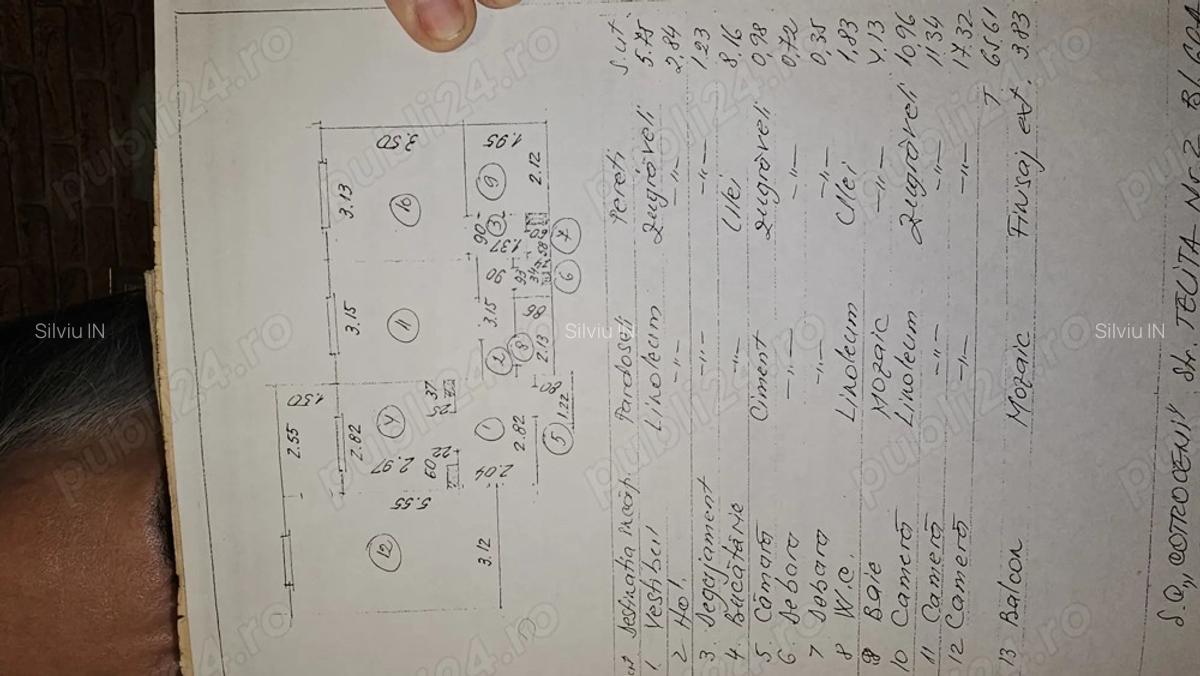 Destinatia incăp. Pardoseli Pereti S.ut.
1. Vestibul Linoleum Zugrăveli 5.75
2 Hol -"- -"- 2,84
3. Degajament -"- -"- 1.23
4. Bucătărie -"- Ulei 8.16
5. Cămară Ciment Zugrăveli 0,98
6. Debara -"- -"- 0,72
7 Debara -"- -"- 0,35
8 W.c. Linoleum Ulei 1,83
9 Baie Mozaic -"- 4,13
10 Cameră Linoleum Zugrăveli 10,96
11 Cameră -"- -"-
12 Cameră -"- -"- 17.32
T 65.61
13 Balcon Mozaic Finisaj ext. 3.83
1.50
2.55
3.50
3.13
3.15
2.82
10
11
4
12
2.97
5.55
3.12
37
60
22
2.04
2.82
1
5
1.22
80
2
8
3.15
86
2.13
90
1.37
3
9
1.95
2.12
6
7
publi24.ro
Silviu IN
Silviu IN
Silviu IN